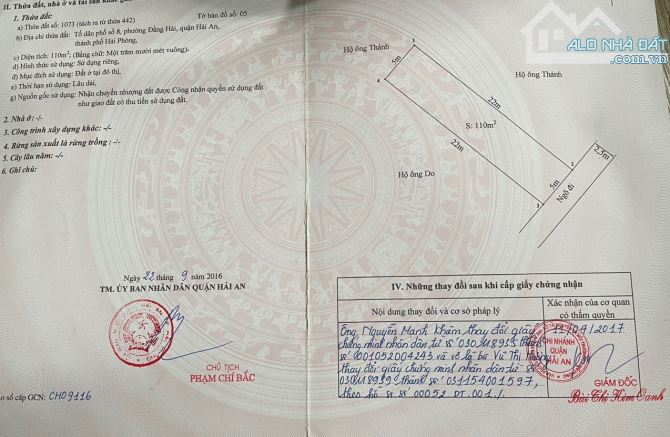 II. Thửa đất, nhà ở và tài sản khác
1. Thửa đất:
a) Thửa đất số: 1073 (tách ra từ thửa 442)
Tờ bản đồ số: 05
b) Địa chỉ thửa đất: Tổ dân phố số 8, phường Đằng Hải, quận Hải An,
thành phố Hải Phòng,
c) Diện tích: 110m², (Bằng chữ: Một trăm mười mét vuông).
d) Hình thức sử dụng: Sử dụng riêng,
đ) Mục đích sử dụng: Đất ở tại đô thị,
e) Thời hạn sử dụng: Lâu dài,
g) Nguồn gốc sử dụng: Nhận chuyển nhượng đất được Công nhận quyền sử dụng đất
như giao đất có thu tiền sử dụng đất.
2. Nhà ở: -/-
3. Công trình xây dựng khác: -/-
4. Rừng sản xuất là rừng trồng: -/-
5. Cây lâu năm: -/-
6. Ghi chú:
ALO NHÀ ĐẤT
.com.vn
Hộ ông Thành
1
5m
4
Hộ ông Thành
22m
S: 110m²
22m
2
2,5m
5m
3
Ngõ đi
Hộ ông Do
Ngày 22 tháng 9 năm 2016
TM. ỦY BAN NHÂN DÂN QUẬN HẢI AN
CHỦ TỊCH
PHẠM CHÍ BẮC
o số cấp GCN: CH09116
IV. Những thay đổi sau khi cấp giấy chứng nhận
Nội dung thay đổi và cơ sở pháp lý
Xác nhận của cơ quan
có thẩm quyền
Ông Nguyễn Mạnh Khiêm thay đổi giấy
chứng minh nhân dân từ số thành
số 001052004243 và vợ là bà Vũ Thị
thay đổi giấy chứng minh nhân dân từ số
thành số 031154001597,
theo hồ sơ số 00052.DT.001./.
11/04/2017
CHI NHÁNH
QUẬN
HẢI AN
GIÁM ĐỐC
Bùi Thị Kim Oanh